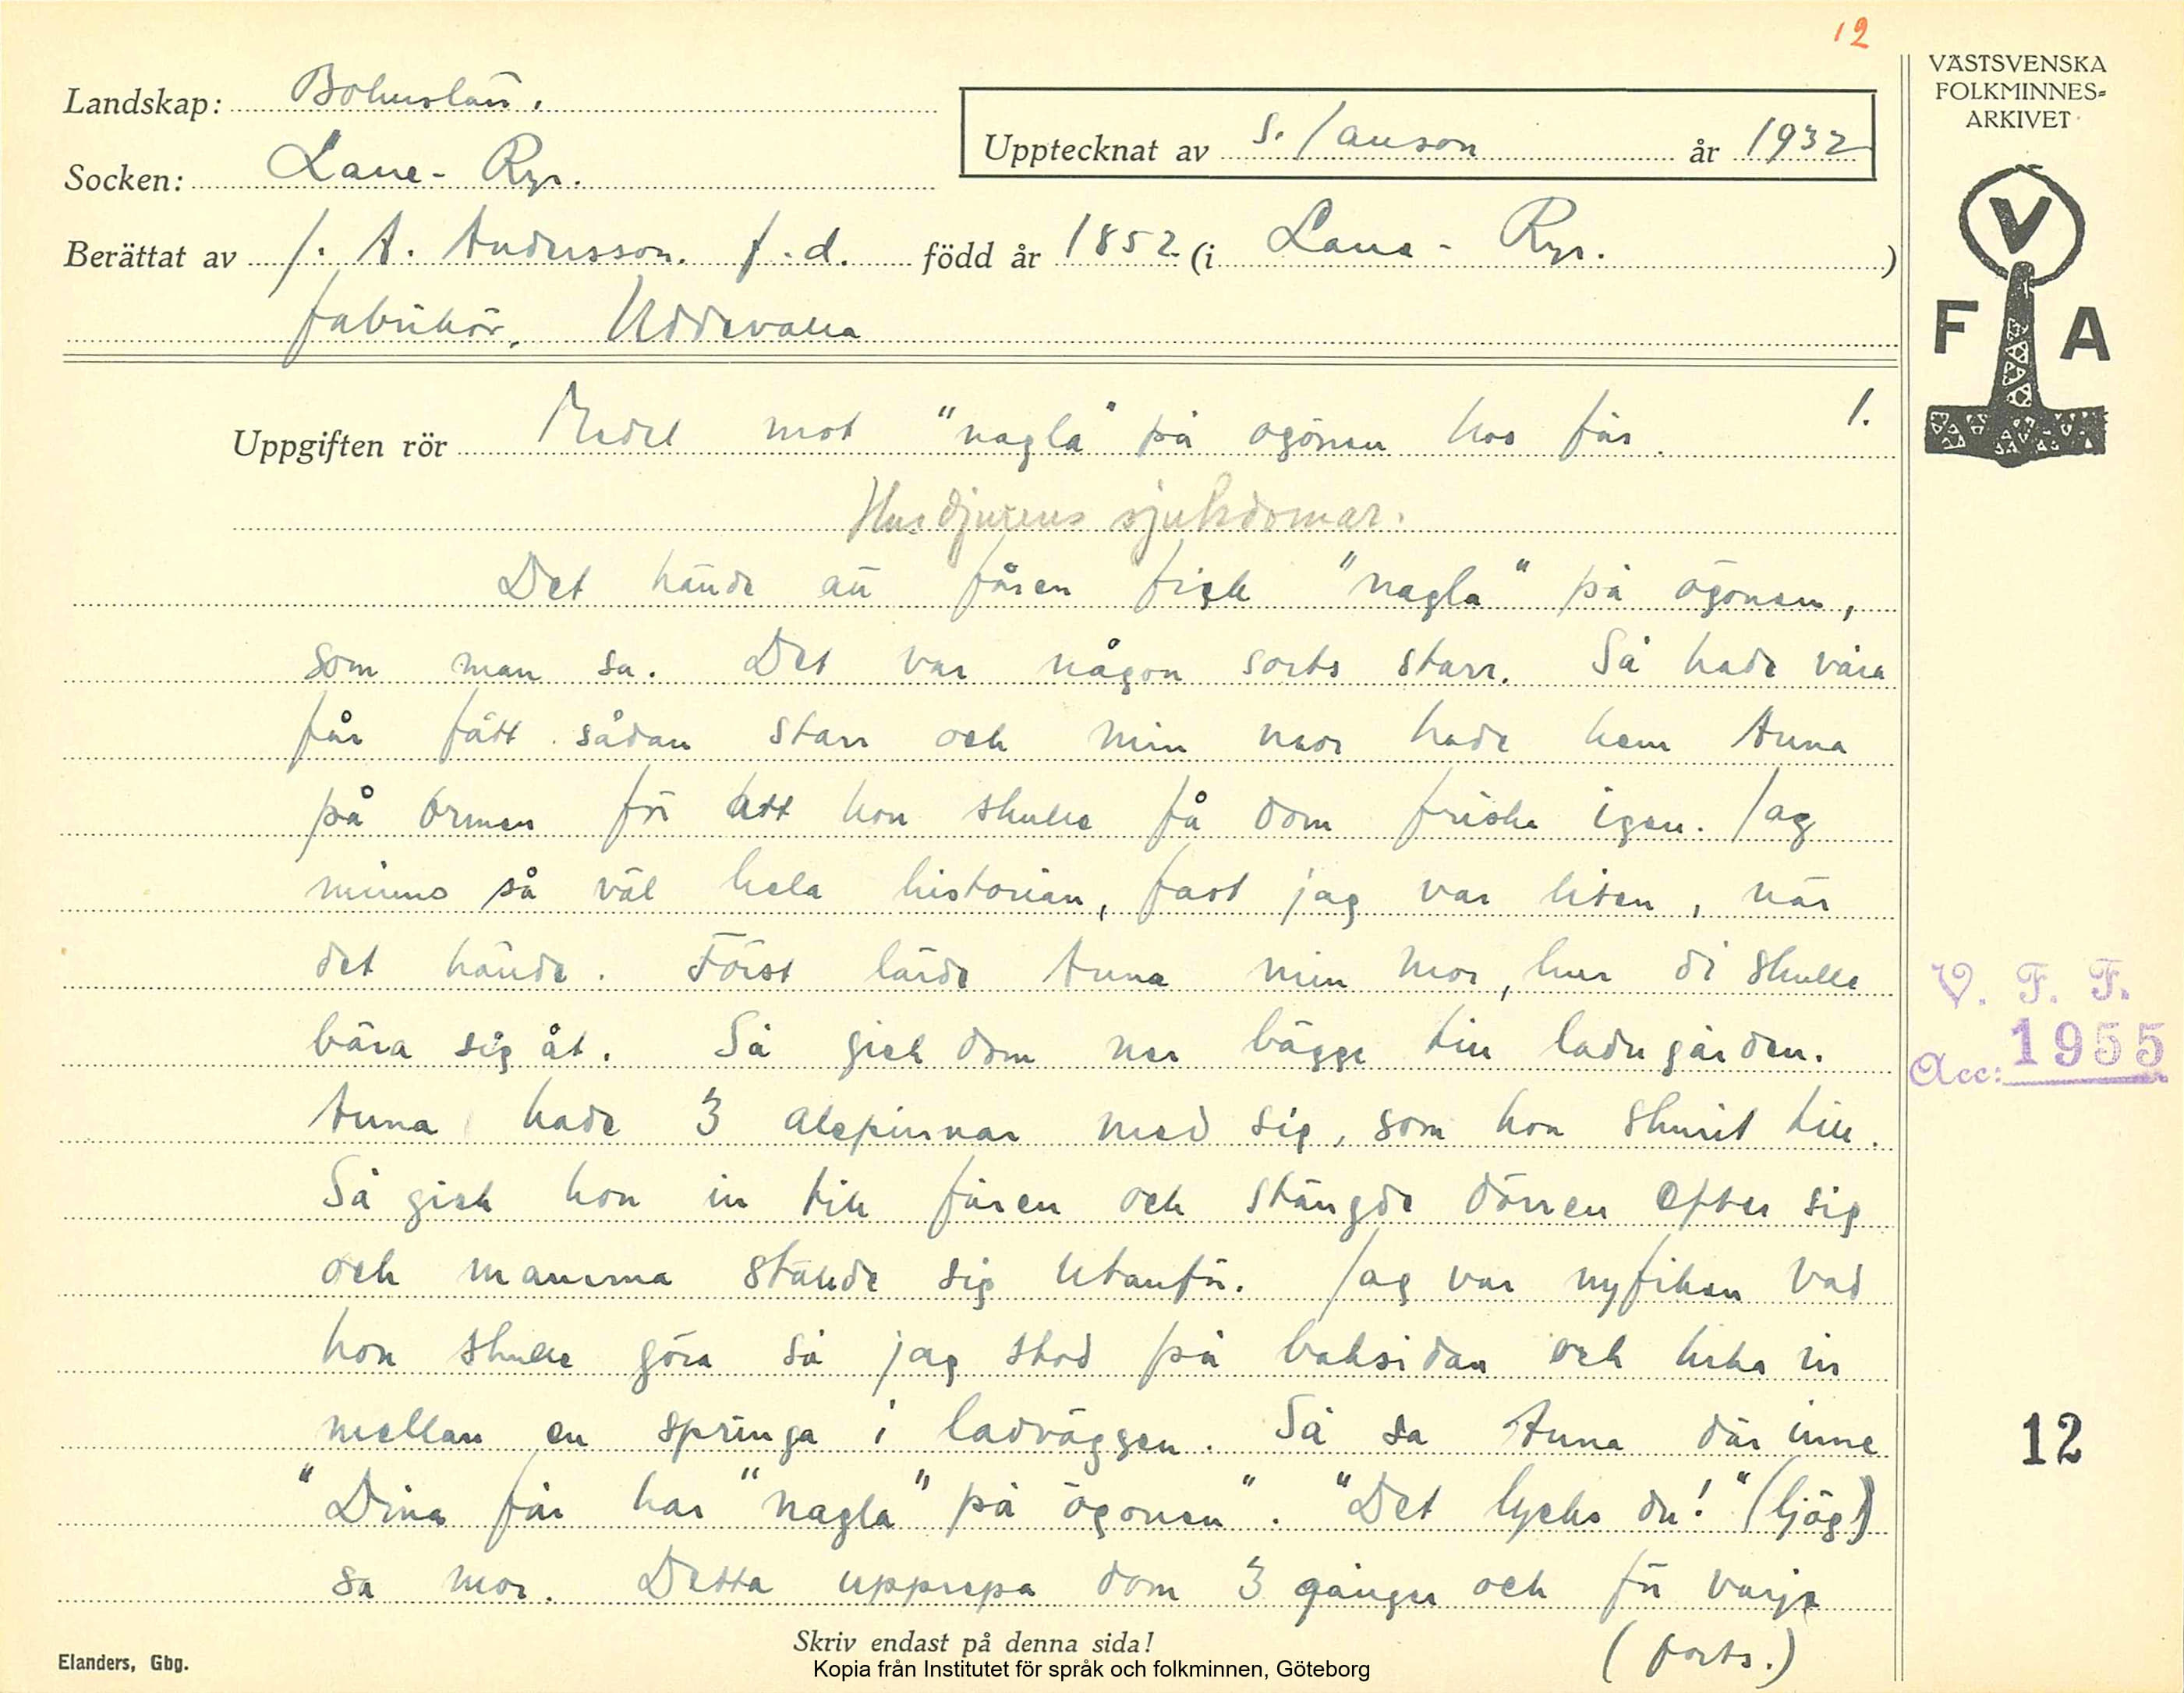 12
VÄSTSVENSKA
FOLKMINNES-
ARKIVET
Landskap: Bohuslän.
Upptecknat av S. Janson år 1932
Socken: Lane-Ryr.
Berättat av J. A. Andersson. f.d. född år 1852 (i Lane-Ryr.)
fabrikör, Uddevalla
V
F A
Uppgiften rör Medel mot "nagla" på ögonen hos får. 1.
Husdjurens sjukdomar.
Det hände att fåren fick "nagla" på ögonen,
som man sa. Det var någon sorts starr. Så hade våra
får fått sådan starr och min mor hade hem Anna
på Ormen för att hon skulle få dom friska igen. Jag
minns så väl hela historian, fast jag var liten, när
det hände. Först lärde Anna min mor, hur di skulle
bära sig åt. Så gick dom ner bägge till ladugården.
Anna hade 3 alepinnar med sig, som hon skurit till.
Så gick hon in till fåren och stängde dörren efter sig
och mamma ställde sig utanför. Jag var nyfiken vad
hon skulle göra så jag stod på baksidan och kika in
mellan en springa i ladväggen. Så sa Anna där inne
"Dina får har "nagla" på ögonen". "Det lycks du!" (ljög)
sa mor. Detta upprepa dom 3 gånger och för varje
(forts.)
V. F. F.
Acc: 1955
12
Skriv endast på denna sida!
Elanders, Gbg.
Kopia från Institutet för språk och folkminnen, Göteborg